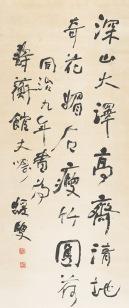 深山大澤高齋清地
奇花媚石瘦竹圓荷
同治九年嘗為
壽蘅館大
叟